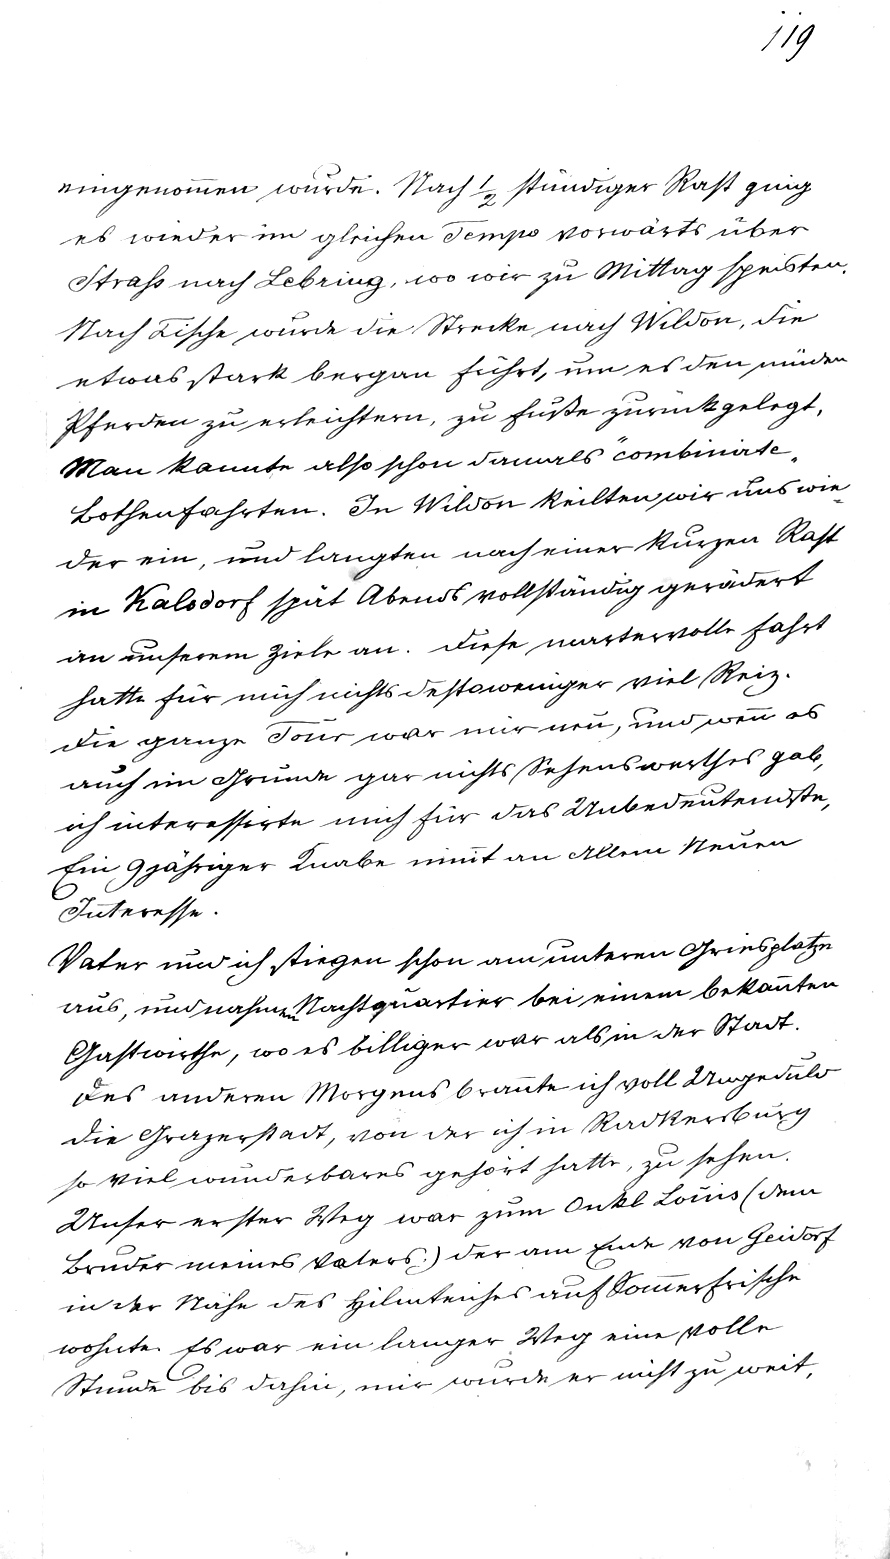 119
eingenom̄en wurde. Nach ½ stündiger Rast ging
es wieder im gleichen Tempo vorwärts über
Straß nach Lebring, wo wir zu Mittag speisten.
Nach Tische wurde die Strecke nach Wildon, die
etwas stark bergan führt, um es den müden
Pferden zu erleichtern, zu Fuße zurückgelegt.
Man kannte also schon damals "combinirte„
Bothenfahrten. In Wildon keilten wir uns wie=
der ein, und langten nach einer kurzen Rast
in Kalsdorf spät Abends vollständig gerädert
an unserem Ziele an. Diese martervolle Fahrt
hatte für mich nichts destoweniger viel Reiz.
Die ganze Tour war mir neu, und wen̄ es
auch im Grunde gar nichts Sehenswerthes gab,
ich interessirte mich für das Unbedeutendste,
Ein 9jähriger Knabe nim̄t an Allem Neuen
Interesse.
Vater und ich stiegen schon am unteren Griesplatze
aus, und nahmen Nachtquartier bei einem bekan̄ten
Gastwirthe, wo es billiger war als in der Stadt.
Des anderen Morgens bran̄te ich voll Ungeduld
die Grazerstadt, von der ich in Radkersburg
so viel wunderbares gehört hatte, zu sehen.
Unser erster Weg war zum Onkl Louis (dem
Bruder meines Vaters.) der am Ende von Geidorf
in der Nähe des Hilmteiches auf Som̄erfrische
wohnte. Es war ein langer Weg eine volle
Stunde bis dahin, mir wurde er nicht zu weit,